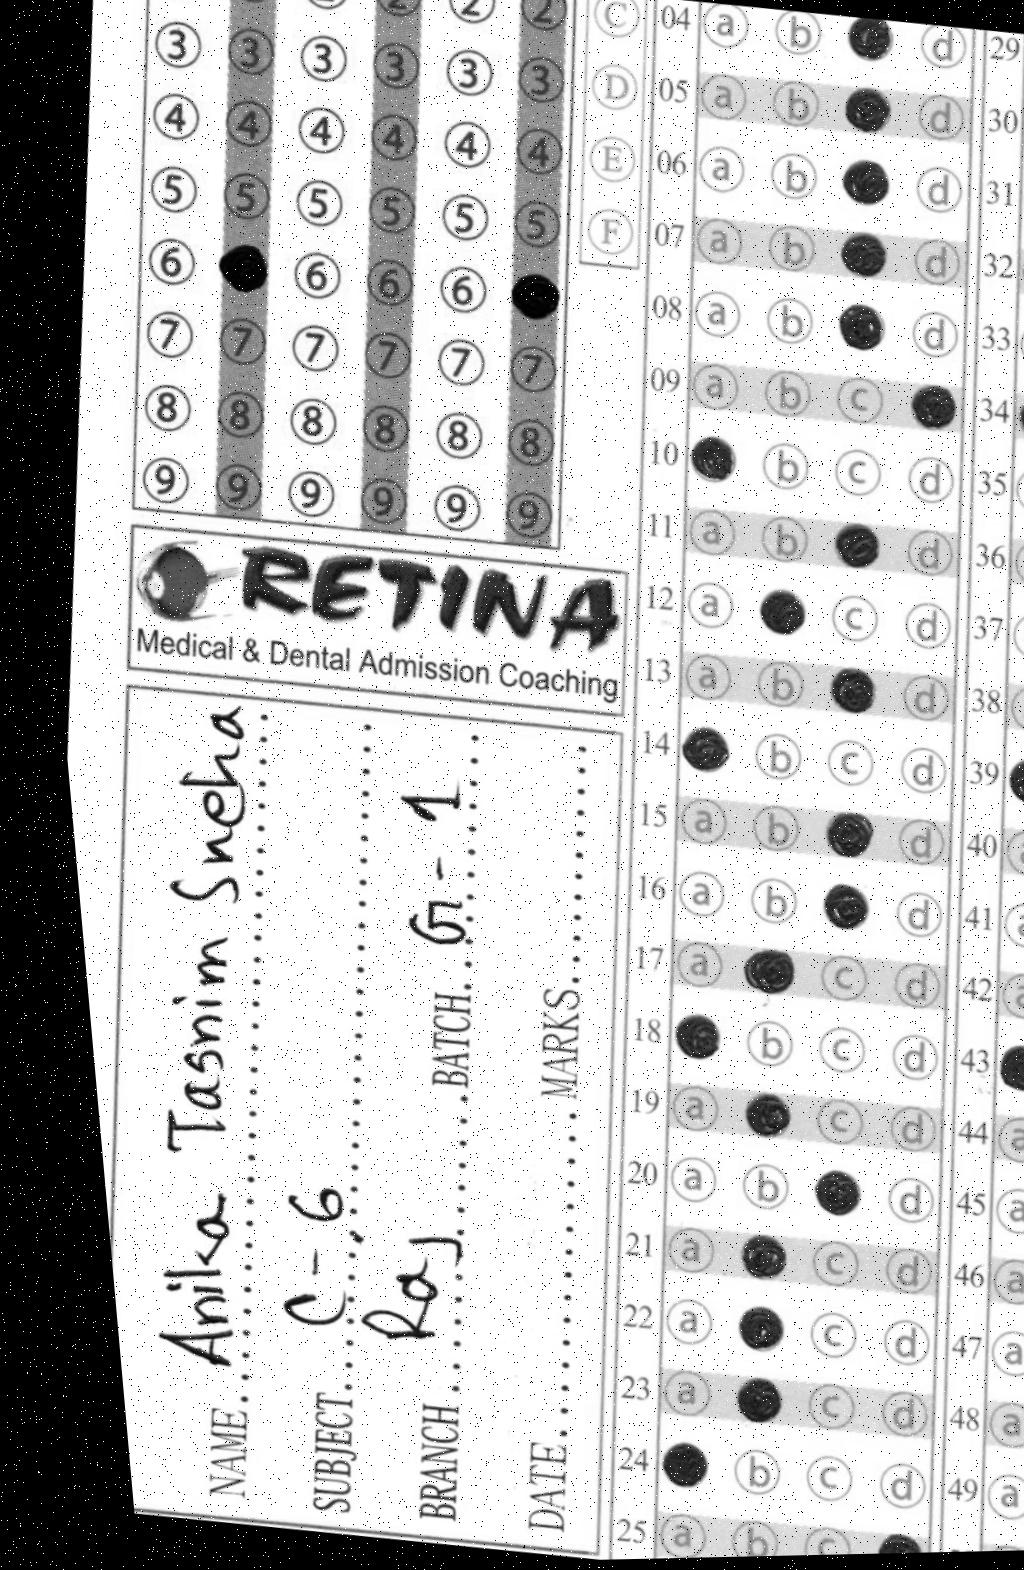 3 3 3 3 3 3
4 4 4 4 4 4
5 5 5 5 5 5
6 6 6 6
7 7 7 7 7 7
8 8 8 8 8 8
9 9 9 9 9 9
C
D
E
F
RETINA
Medical & Dental Admission Coaching
NAME Anika Tasnim Sneha
SUBJECT C-6
BRANCH Raj BATCH G-1
DATE MARKS
04 a b d
05 a b d
06 a b d
07 a b d
08 a b d
09 a b c
10 b c d
11 a b d
12 a c d
13 a b d
14 b c d
15 a b d
16 a b d
17 a c d
18 b c d
19 a c d
20 a b d
21 a c d
22 a c d
23 a c d
24 b c d
25 a b c
29
30
31
32
33
34
35
36
37
38
39
40 a
41 a
42 a
43
44 a
45 a
46 a
47 a
48 a
49 a